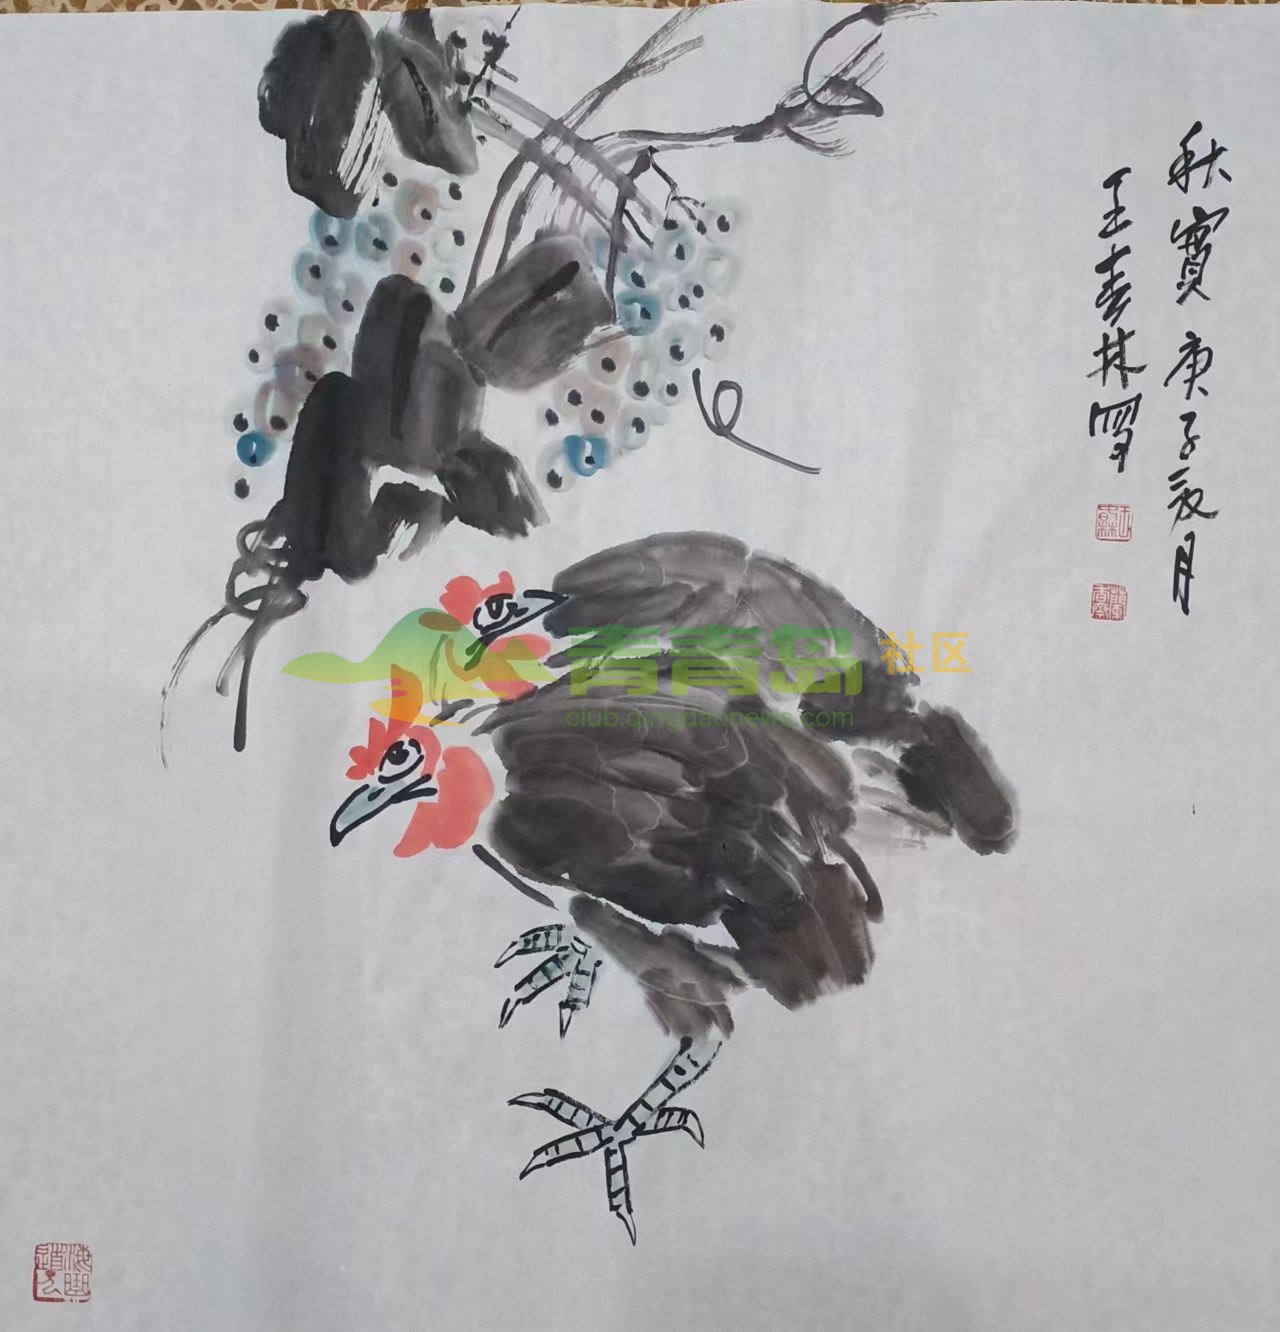 秋實庚子秋月
王春林写
青青岛社区
club.qingdaonews.com